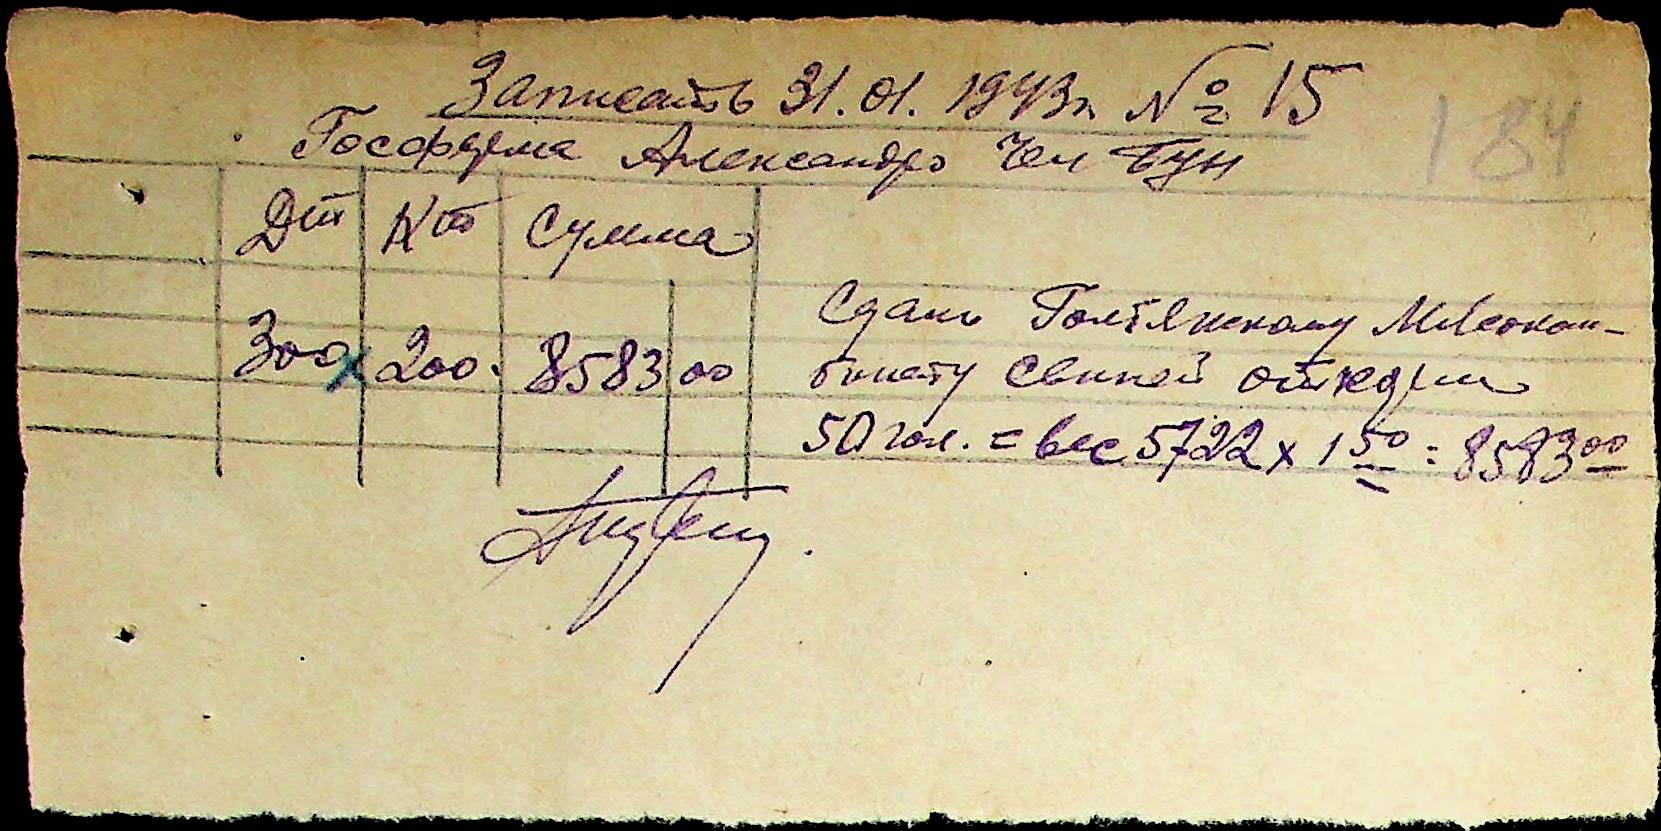 Записать 31.01.1943г № 15
184
Госферма Александро Чел Бун
Дт Кт Сумма
300 x 200. 8583 00
Сдано Голтянскому Мясоком-
бинату свиней откорм
50 гол. = вес 5722 х 1 50 = 8583 00